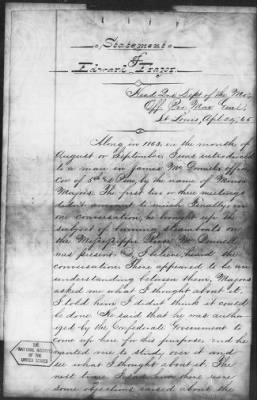 Statement
of
Edward Frazor.
Head Qrs Dept of the Mo
Off. Pro. Mar. Genl.
St Louis, Apl. 24, '65
Along in 1863, in the month of
August or September, I was introduced
to a man in James Mc Donnell's office
Cor of 5th & Pine, by the name of
Majors. The first two or three meetings
didn't amount to much. Finally, in
one conversation, he brought up the
subject of burning steamboats on
the Mississippi River. Mc Donnell
was present. &, I believe, heard the
conversation. There appeared to be an
understanding between them. Majors
asked me what I thought about it.
I told him I didn't think it could
be done. He said that he was autho-
ized by the Confederate Government to
come up here for this purpose, and he
wanted me to study over it and
see what I thought about it. The
next time I saw him there were
some objections raised about the
THE
NATIONAL ARCHIVES
OF THE
UNITED STATES